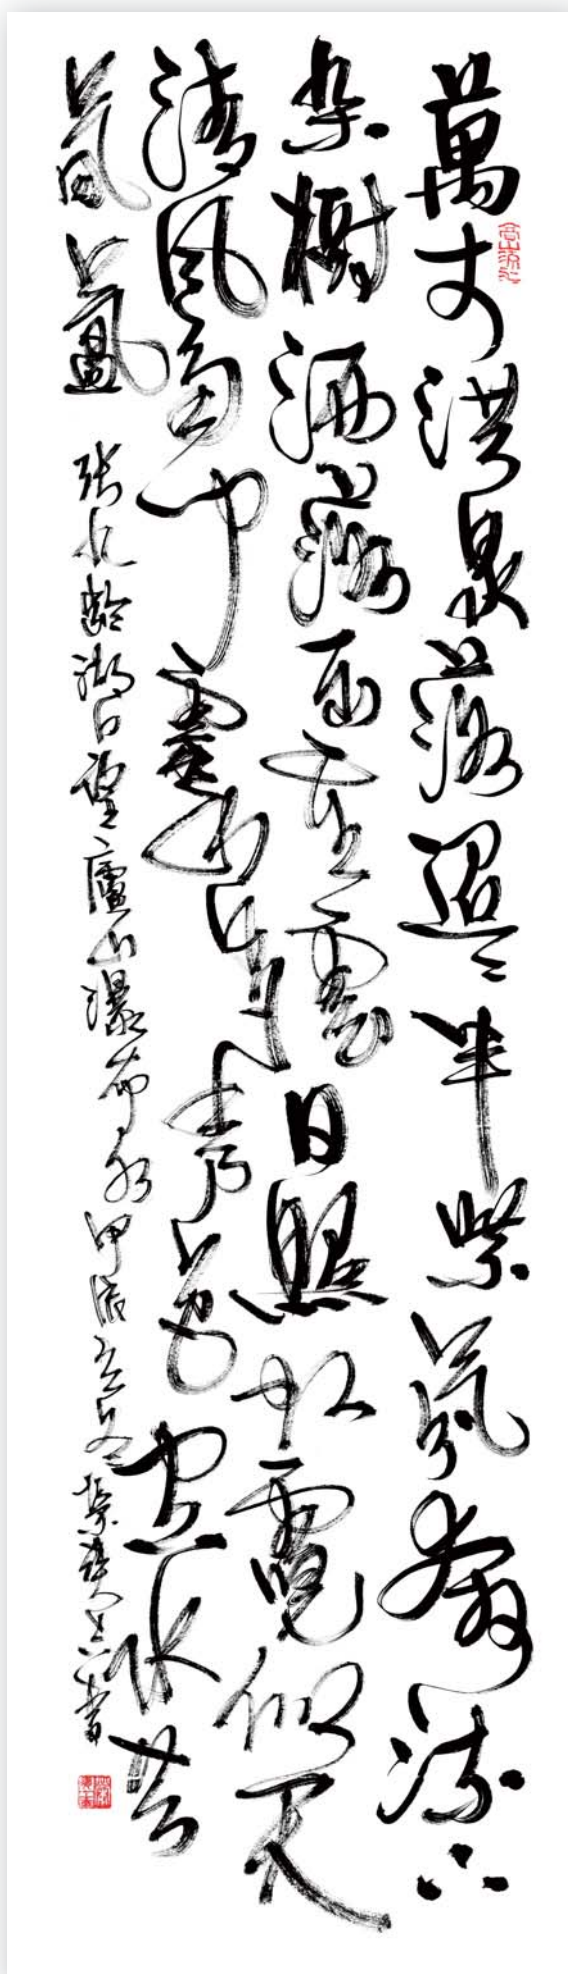 萬丈洪泉落迢迢半紫氛奔流下
杂樹洒落出重雲日照虹霓似天
清風雨聞靈山多秀色空水共
氤氳 張九齡湖口望廬山瀑布水 甲辰立冬 書